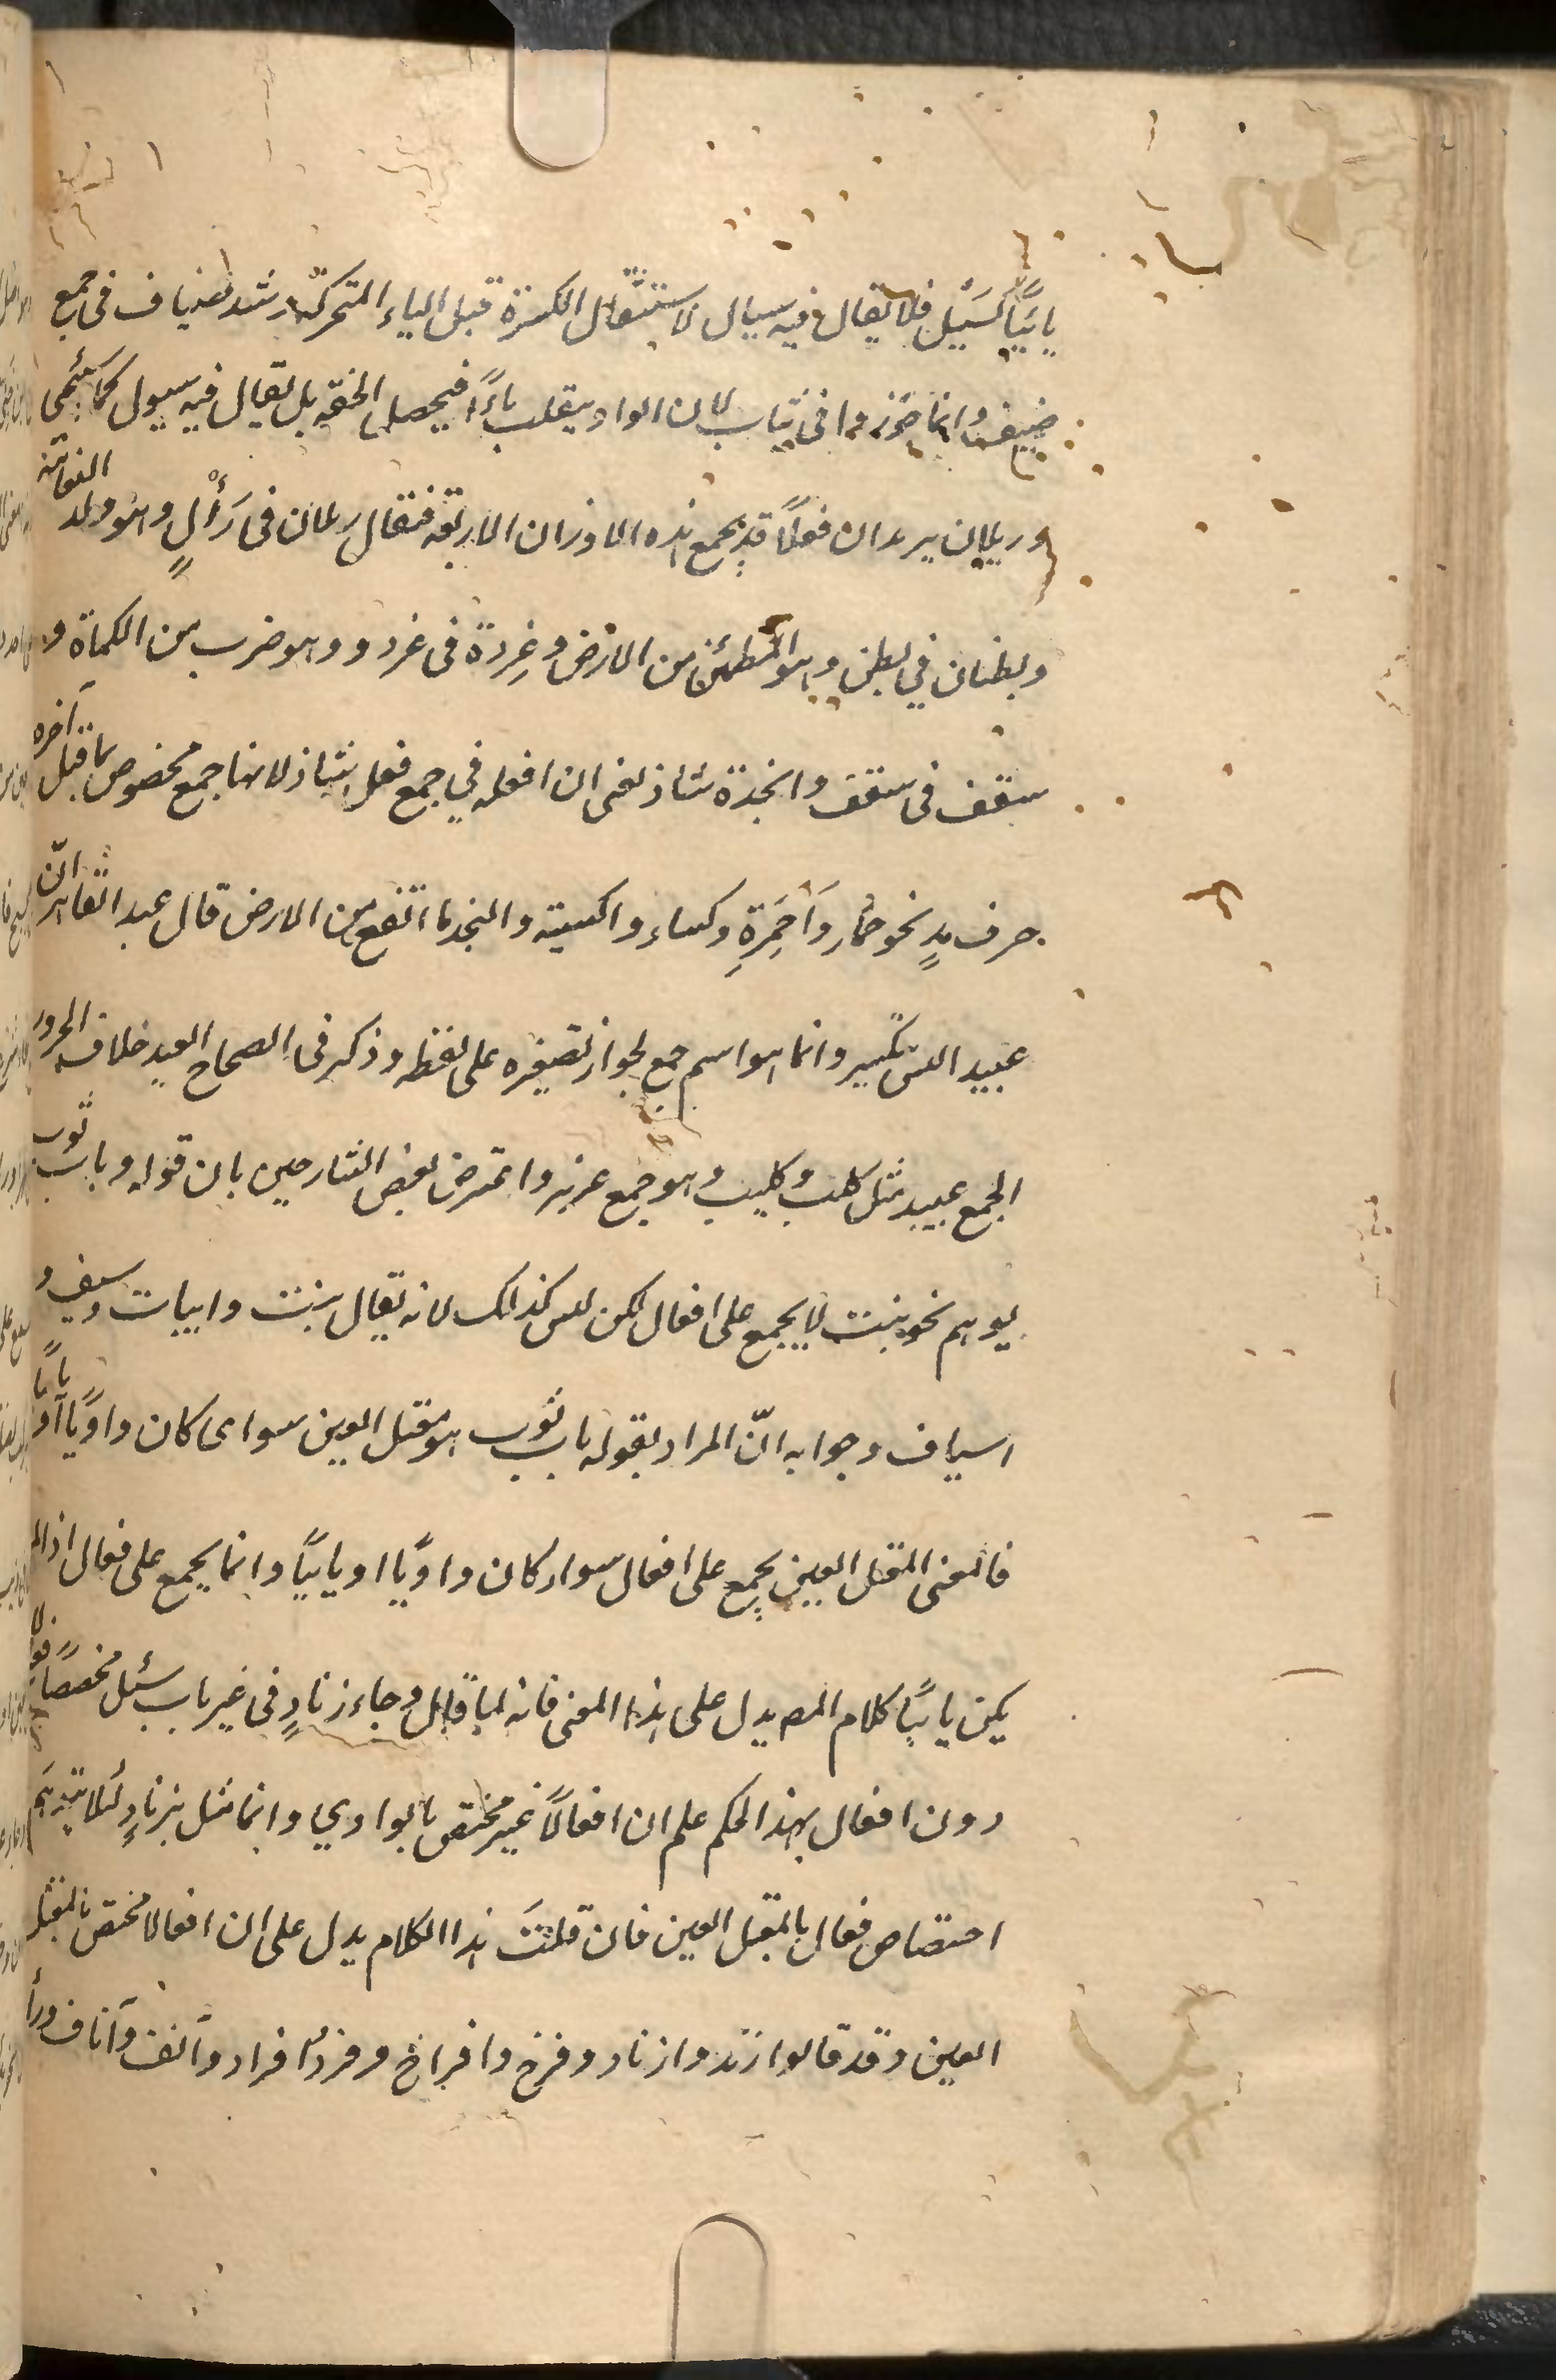 يائيًا كسَيْل فلا يقال فيه سيال لاستثقال الكسرة قبل الياء المتحركة وشذ ضياف فى جمع
ضيف وانما جوزوا فى ثياب لان الواو ينقلب ياءً فيحصل الخفة بل يقال فيه سيول كما سيجئ
وريلان يريد ان فعلًا قد يجمع هذه الاوزان الاربعة فيقال ريلان فى رَأْلٍ وهو ولد النعامة
وبطنان في بطن وهو المطمئن من الارض وغِردة فى غرد وهو ضرب من الكماة و
سقف فى سقف وانجدة شاذ يعنى ان افعلة في جمع فعل شاذ لانها جمع مخصوص بما قبل آخره
حرف مدٍ نحو حمار وَأَحمِرَةٍ وكساء واكسية والنجد ما ارتفع من الارض قال عبد القاهر انّ
عبيد اللس تكسير وانما هو اسم جمع لجواز تصغيره على لفظه وذكر فى الصحاح العبد خلاف الحر و
الجمع عبيد مثل كلب وكليب وهو جمع عزيز واعترض بعض الشارحين بان قوله وباب ثوب
يوهم نحو بيت لا يجمع على افعال لكن ليس كذلك لانه يقال بيت وابيات وسيف و
اسياف وجوابه انّ المراد بقوله باب ثوب هو معتل العين سواء كان واويًا او يائيًا
فالمعنى المعتل العين يجمع على افعال سواء كان واويًا او يائيًا وانما يجمع على فعال اذا لم
يكن يائيًا كلام المص يدل على هذا المعنى فانه لما قال وجاء زنادٍ فى غير باب سيل مخصصًا فعالا
دون افعال بهذا الحكم علم ان افعالًا غير مختص بالواوي وانما مثل بزنادٍ لئلا يتوهم
اختصاص فعال بالمعتل العين فان قلتَ هذا الكلام يدل على ان افعالا مختص بالمعتل
العين وقد قالوا زند وازناد وفرخ وافراخ وفرد افراد وانف وآناف ورأ